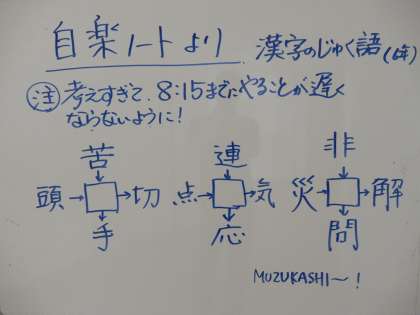 自楽ノートより
漢字のじゅく語(6年)
注 考えすぎて、8:15までにやることが遅く
ならないように!
苦 連 非
頭→□→切 点→□→気 災→□→解
手 応 問
MUZUKASHI〜!